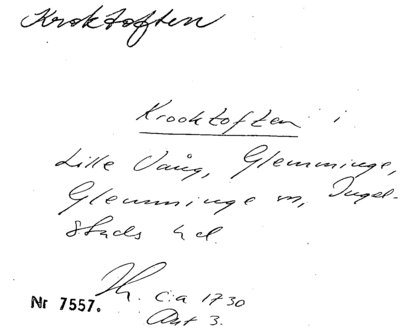 Kroktoften
Krooktoften i
Lille Vång, Glemminge,
Glemminge sn, Ingel-
stads hd.
Th. c:a 1730
Akt 3.
Nr 7557.